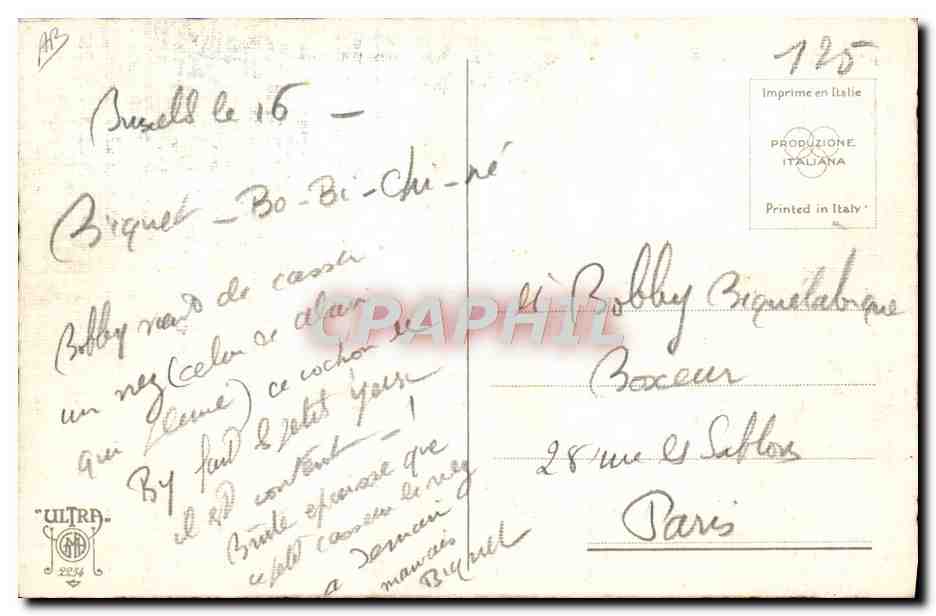 AB
125
Imprime en Italie
PRODUZIONE
ITALIANA
Printed in Italy
Bruxelles le 16 —
Biquet - Bo - Bi - Chi - né
Bobby vient de casser
un nez (celui de Alain
qui pleure) ce cochon de
By fait le petit
il est contant - !
Brute epaisse que
ce petit casseur de nez
a demain
mauvais
Biquet
Bobby Biquetabique
Boxeur
28 rue les Sablons
Paris
CPAPHIL
"ULTRA"
2254